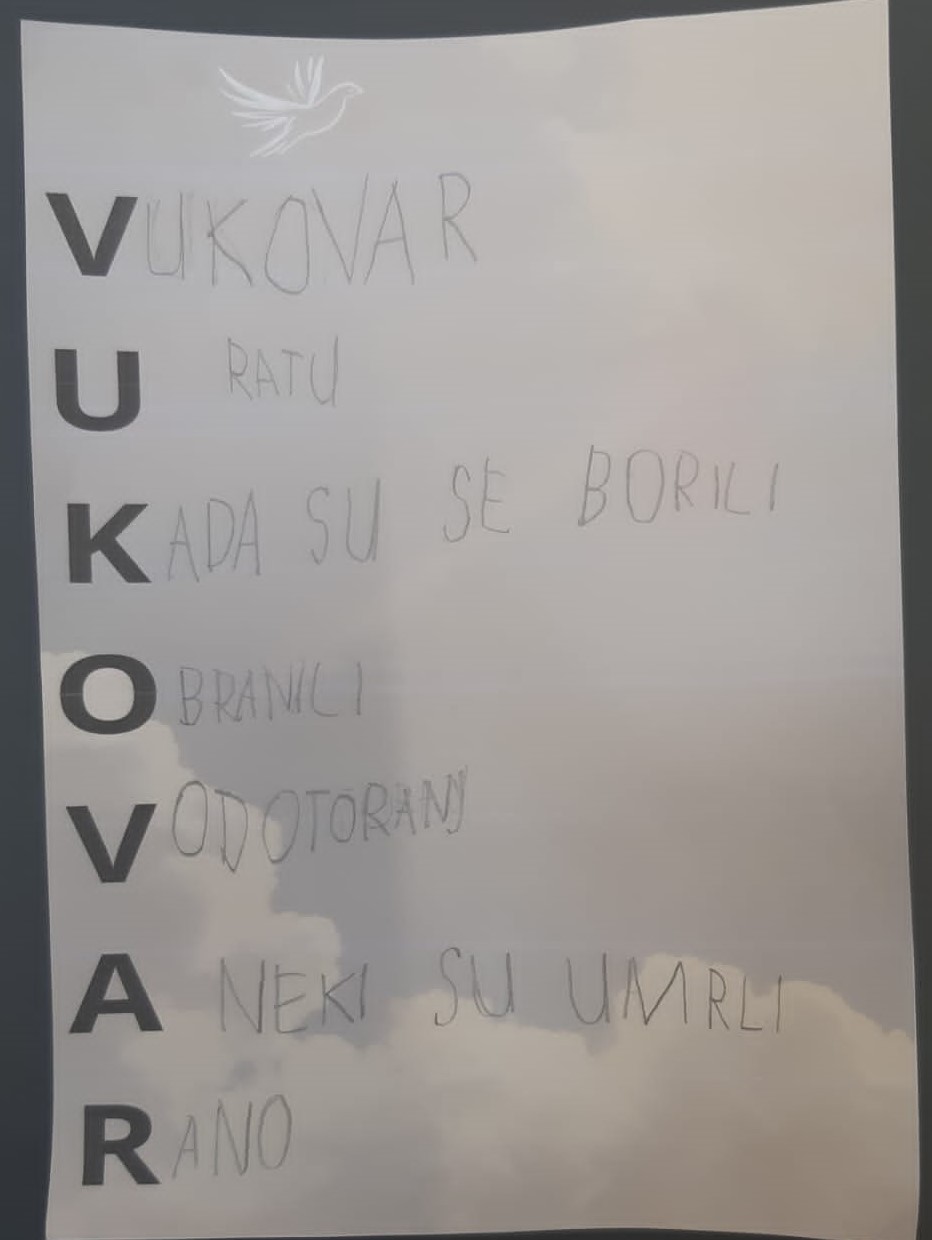 VUKOVAR
U RATU
KADA SU SE BORILI
OBRANILI
VODOTORANJ
A NEKI SU UMRLI
RANO